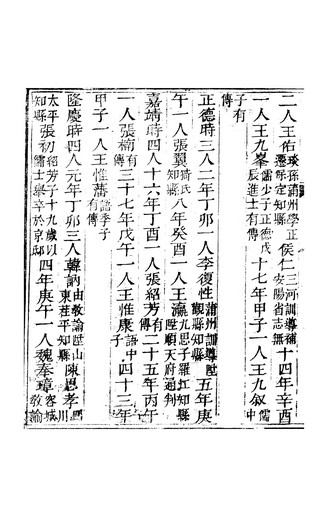 二人王佑琰孫蒲州學正遷保定知縣侯仁三河訓導補安陽省志無十四年辛酉
一人王九峯儒少子正德戊辰進士有傳十七年甲子一人王九叙儒中
子有傳
正德時三人二年丁卯一人李復性蒲州訓導陞觀縣知縣五年庚
午一人張翼猗氏知縣八年癸酉一人王瀛九思子羅江知縣陞順天府通判
嘉靖時四人十六年丁酉一人張紹芳有傳二十五年丙午
一人張楠有傳三十七年戊午一人王惟康語中子四十三年
甲子一人王惟藩語季子有傳
隆慶時四人元年丁卯三人韓訥由教諭陞山東茌平知縣陳思孝四川
太平知縣張初紹芳子十九歲以儒士舉卒於京邸四年庚午一人魏奉璋容城教諭